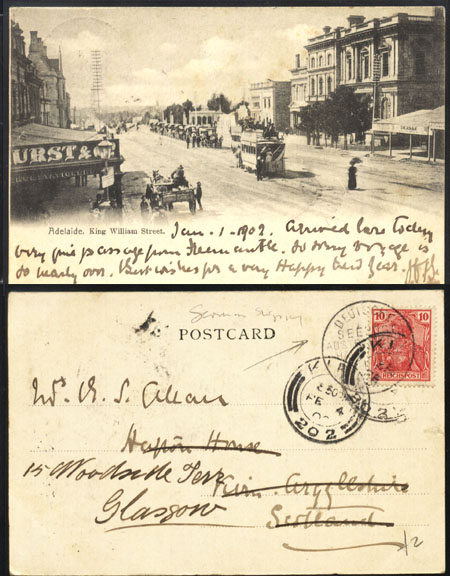 URST & C
Adelaide. King William Street. Jan. 1-1902. Arrived here today
very fine passage from Fremantle. So my voyage is
so nearly over. Best wishes for a very Happy New Year.
German
POSTCARD
DEUTSCHE
SEEPOST
10 10
REICHSPOST
KI
202
Mr. R. S. Allan
Hafton House
15 Woodside Terr
Kirn. Argyllshire
Glasgow
Scotland
12